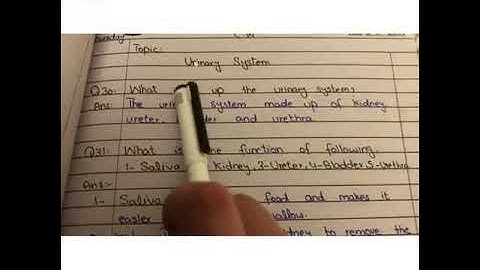 Tuesday C.W
Topic:
Urinary System
Q30: What up the urinary system?
Ans: The system made up of kidney,
ureter, and urethra.
Q31: What is the function of following.
1- Saliva Kidney, 3-Ureter, 4-Bladder, 5-Urethra
Ans:-
1- Saliva food and makes it
easier swallow.
to remove the